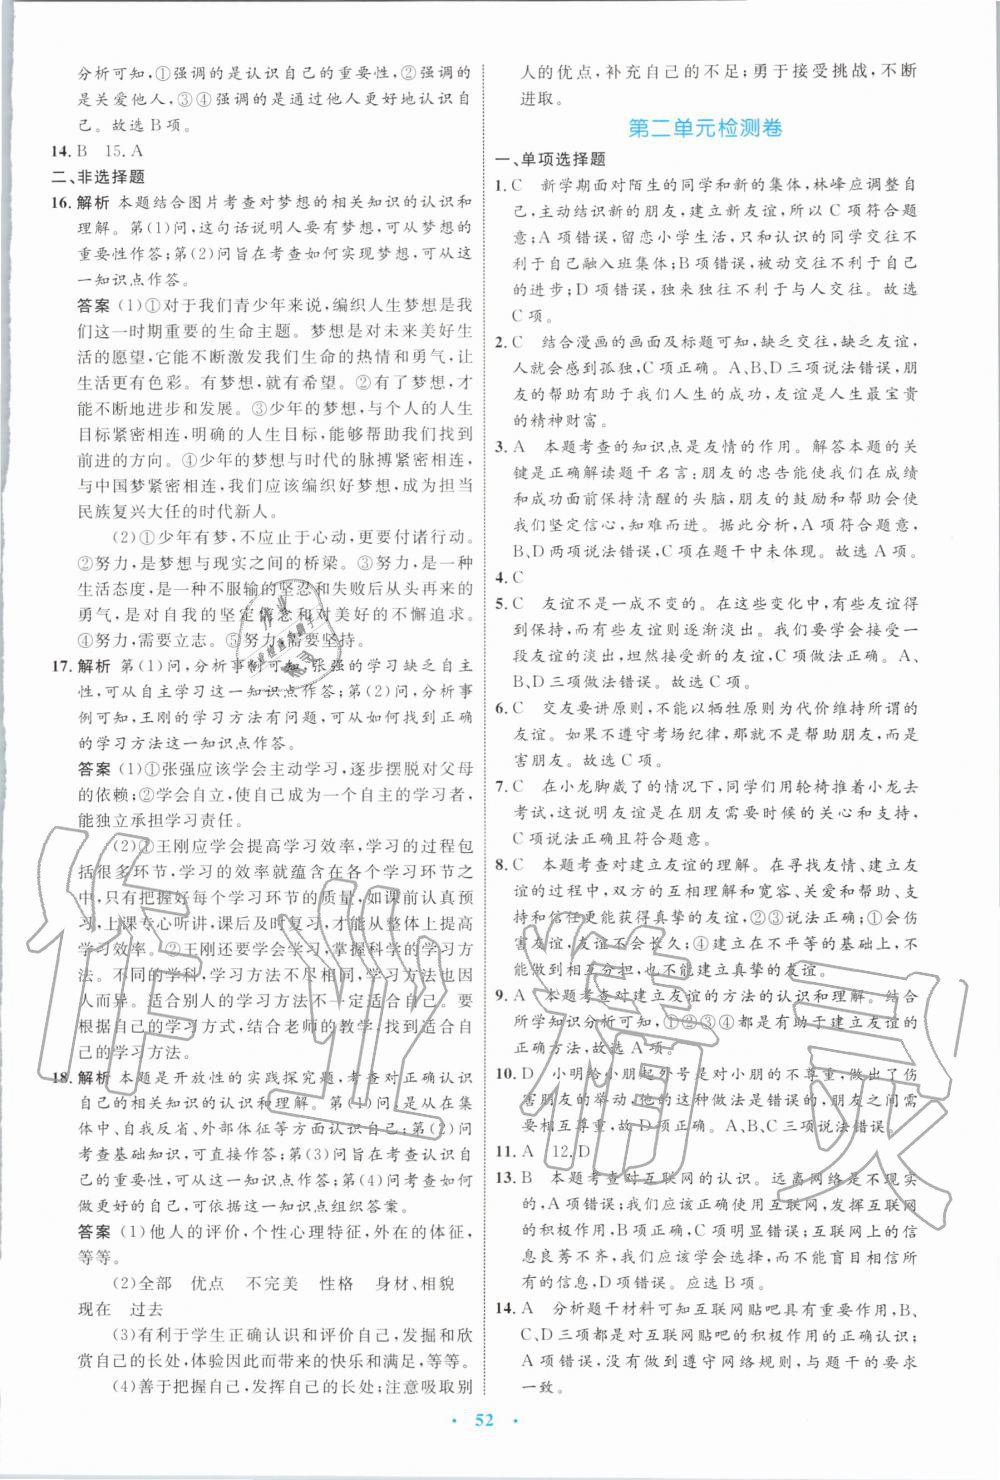 分析可知,①强调的是认识自己的重要性,②强调的
是关爱他人,③④强调的是通过他人更好地认识自
己。故选B项。
14. B 15. A
二、非选择题
16. 解析 本题结合图片考查对梦想的相关知识的认识和
理解。第(1)问,这句话说明人要有梦想,可从梦想的
重要性作答;第(2)问旨在考查如何实现梦想,可从这
一知识点作答。
答案 (1)①对于我们青少年来说,编织人生梦想是我
们这一时期重要的生命主题。梦想是对未来美好生
活的愿望,它能不断激发我们生命的热情和勇气,让
生活更有色彩。有梦想,就有希望。②有了梦想,才
能不断地进步和发展。③少年的梦想,与个人的人生
目标紧密相连,明确的人生目标,能够帮助我们找到
前进的方向。④少年的梦想与时代的脉搏紧密相连,
与中国梦紧密相连,我们应该编织好梦想,成为担当
民族复兴大任的时代新人。
(2)①少年有梦,不应止于心动,更要付诸行动。
②努力,是梦想与现实之间的桥梁。③努力,是一种
生活态度,是一种不服输的坚忍和失败后从头再来的
勇气,是对自我的坚定信念和对美好的不懈追求。
④努力,需要立志。⑤努力,需要坚持。
17. 解析 第(1)问,分析事例可知,张强的学习缺乏自主
性,可从自主学习这一知识点作答;第(2)问,分析事
例可知,王刚的学习方法有问题,可从如何找到正确
的学习方法这一知识点作答。
答案 (1)①张强应该学会主动学习,逐步摆脱对父母
的依赖;②学会自立,使自己成为一个自主的学习者,
能独立承担学习责任。
(2)①王刚应学会提高学习效率,学习的过程包
括很多环节,学习的效率就蕴含在每个学习环节之
中,只有把握好每个学习环节的质量,如课前认真预
习,上课专心听讲,课后及时复习,才能从整体上提高
学习效率。②王刚还要学会学习,掌握科学的学习方
法。不同的学科,学习方法不尽相同,学习方法也因
人而异。适合别人的学习方法不一定适合自己。要
根据自己的学习方式,结合老师的教学,找到适合自
己的学习方法。
18. 解析 本题是开放性的实践探究题,考查对正确认识
自己的相关知识的认识和理解。第(1)问,是从在集
体中、自我反省、外部体征等方面认识自己;第(2)问
考查基础知识,可直接作答;第(3)问旨在考查认识自
己的重要性,可从这一角度作答;第(4)问考查如何做
更好的自己,可依据这一知识点组织答案。
答案 (1)他人的评价,个性心理特征,外在的体征,
等等。
(2)全部 优点 不完美 性格 身材、相貌
现在 过去
(3)有利于学生正确认识和评价自己,发掘和欣
赏自己的长处,体验因此而带来的快乐和满足,等等。
(4)善于把握自己,发挥自己的长处;注意吸取别
人的优点,补充自己的不足;勇于接受挑战,不断
进取。
第二单元检测卷
一、单项选择题
1. C 新学期面对陌生的同学和新的集体,林峰应调整自
己,主动结识新的朋友,建立新友谊,所以C项符合题
意;A项错误,留恋小学生活,只和认识的同学交往不
利于自己融入班集体;B项错误,被动交往不利于自己
的进步;D项错误,独来独往不利于与人交往。故选
C项。
2. C 结合漫画的画面及标题可知,缺乏交往,缺乏友谊,
人就会感到孤独,C项正确。A、B、D三项说法错误,朋
友的帮助有助于我们人生的成功,友谊是人生最宝贵
的精神财富。
3. A 本题考查的知识点是友情的作用。解答本题的关
键是正确解读题干名言:朋友的忠告能使我们在成绩
和成功面前保持清醒的头脑,朋友的鼓励和帮助会使
我们坚定信心,知难而进。据此分析,A项符合题意,
B、D两项说法错误,C项在题干中未体现。故选A项。
4. C
5. C 友谊不是一成不变的。在这些变化中,有些友谊得
到保持,而有些友谊则逐渐淡出。我们要学会接受一
段友谊的淡出,坦然接受新的友谊。C项做法正确,A、
B、D三项做法错误。故选C项。
6. C 交友要讲原则,不能以牺牲原则为代价维持所谓的
友谊。如果朋友不遵守考场纪律,那不是帮助朋友,而是
害朋友。故选C项。
7. C 在小龙脚崴了的情况下,同学们用轮椅推着小龙去
考试,这说明友谊是在朋友需要时候的关心和支持,
C项说法正确且符合题意。
8. C 本题考查对建立友谊的理解。在寻找友情、建立友
谊的过程中,双方的互相理解和宽容、关爱和帮助、支
持和信任更能获得真挚的友谊,②③说法正确;①会伤
害友谊,友谊不会长久;④建立在不平等的基础上,不
能做到相互分担,也不能建立真挚的友谊。
9. A 本题考查对建立友谊的方法的认识和理解。结合
所学知识分析可知,①②③④都是有助于建立友谊的
正确方法,故选A项。
10. D 小明给小朋起外号是对小朋的不尊重,做出了伤
害朋友的举动,他的这种做法是错误的,朋友之间需
要相互尊重,故D项正确。A、B、C三项说法错误。
11. A 12. D
13. B 本题考查对互联网的认识。远离网络是不现实
的,A项错误;我们应该正确使用互联网,发挥互联网
的积极作用,B项正确,C项明显错误;互联网上的信
息良莠不齐,我们应该学会选择,而不能盲目相信所
有的信息,D项错误。应选B项。
14. A 分析题干材料可知互联网贴吧具有重要作用,B、
C、D三项都是对互联网贴吧的积极作用的正确认识;
A项强调的是如何做到遵守网络规则,与题干的要求
一致。
· 52 ·
作业精灵